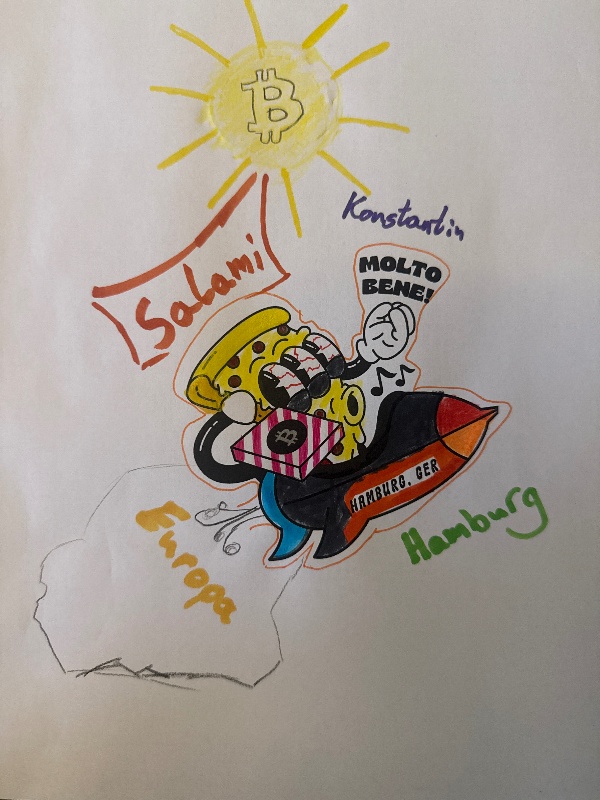 ₿
Konstantin
Salami
MOLTO
BENE!
₿
HAMBURG, GER
Hamburg
Europa